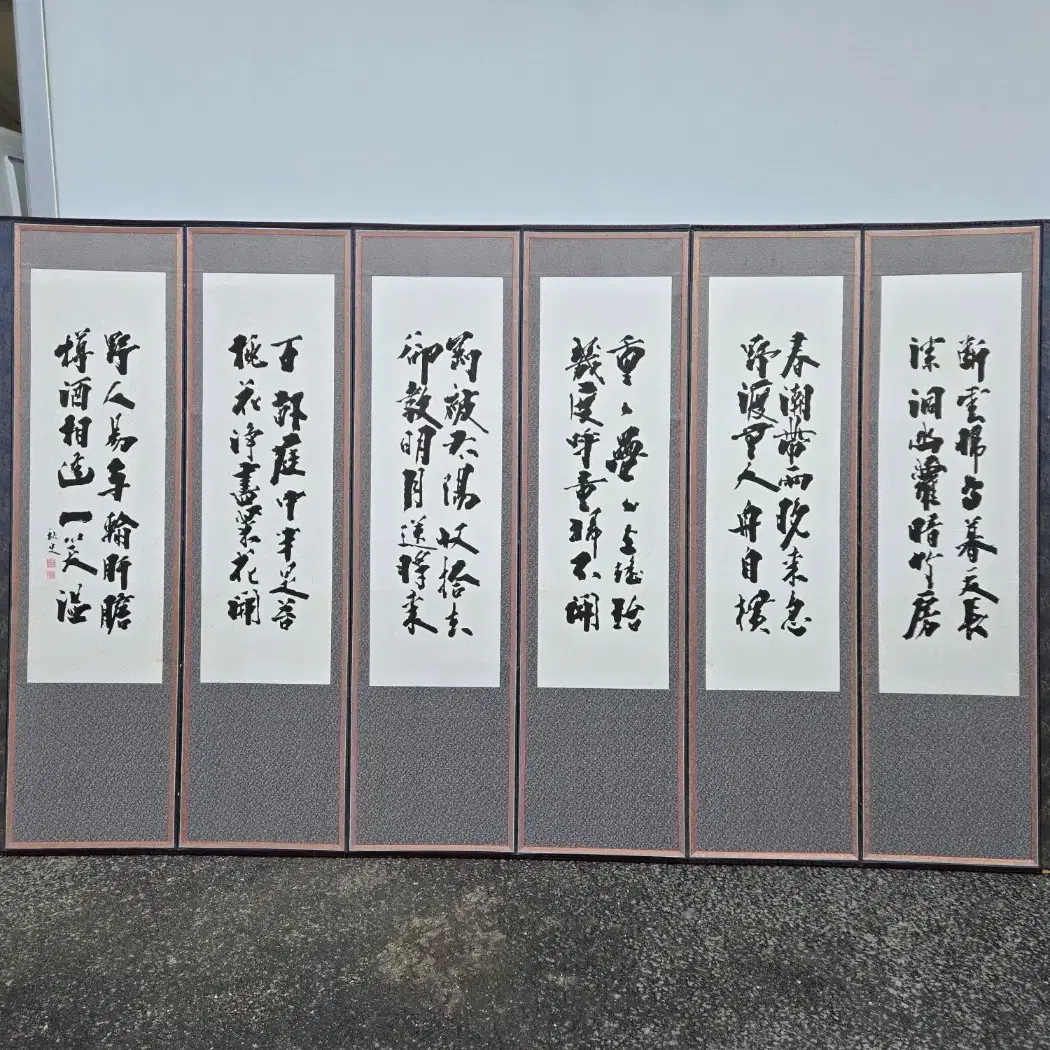 斷雲歸鳥暮天長
深洞幽蘿暗竹房
春潮帶雨晚來急
野渡無人舟自橫
重々疊々上瑤臺
幾度呼童掃不開
剛被太陽收拾去
卻教明月送將來
百畝庭中半是苔
桃花淨盡菜花開
野人易與輸肝膽
樽酒相逢一笑溫
秋史